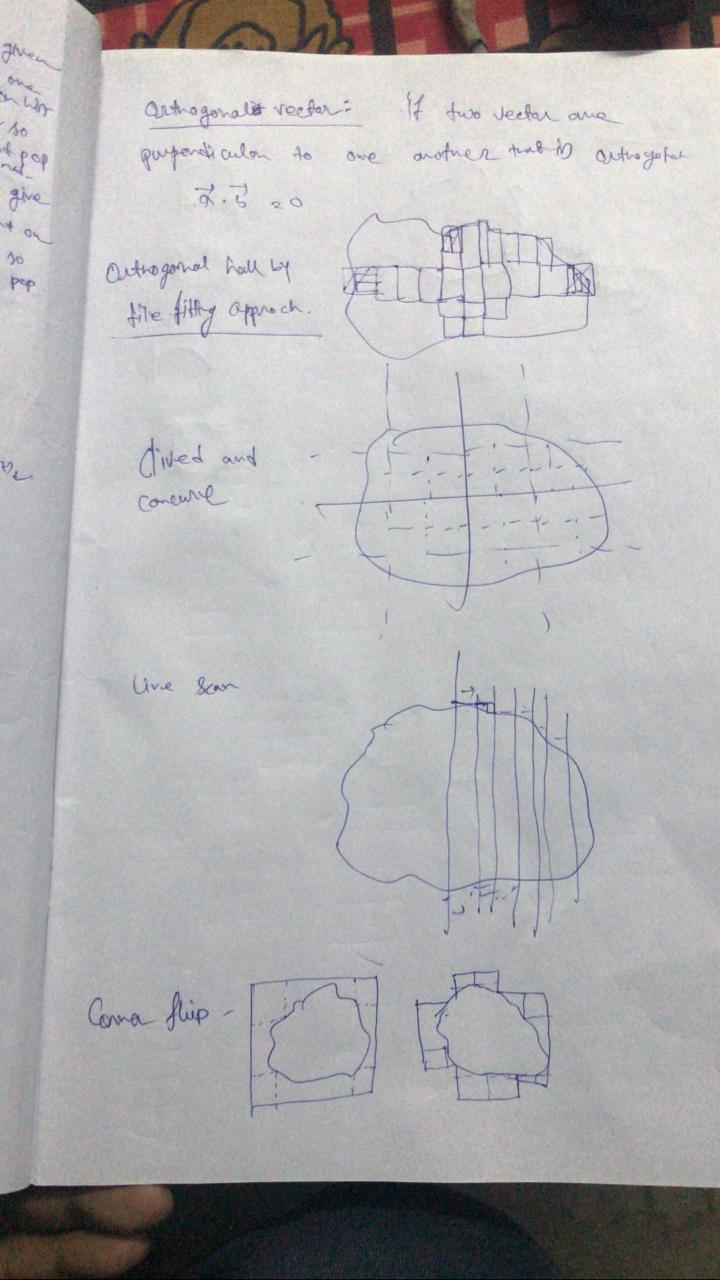 given
one
so
pop
give
so
pop
Orthogonal vector:- If two vector are
perpendicular to one another that is orthogonal
a⃗ . b⃗ = 0
Orthogonal hall by
tile fitting approch.
Dived and
concure
Line scan
flip -